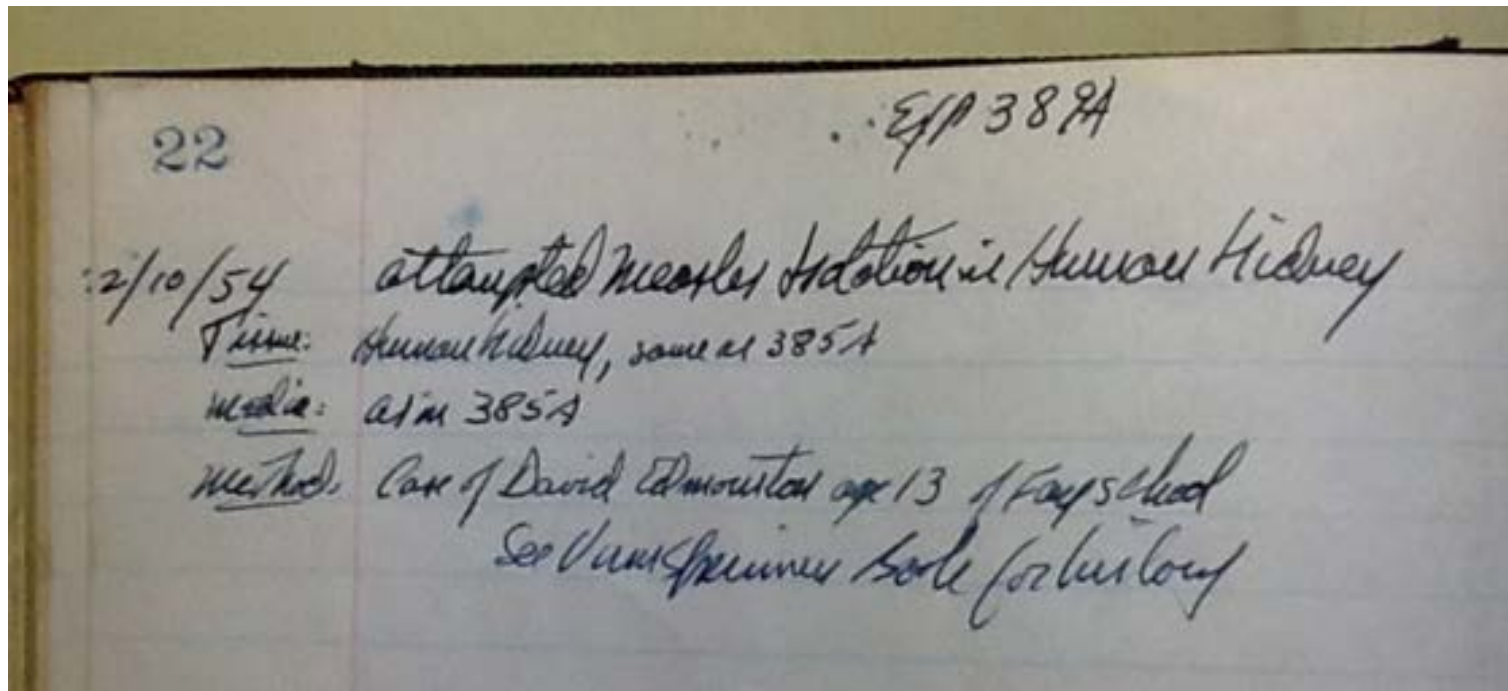 22
Exp 389A
2/10/54 attempted Measles Isolation in Human Kidney
Tissue: Human Kidney, same as 385A
Media: as in 385A
Method: Case of David Edmonston age 13 of Fay School
See Virus Specimen Book for history